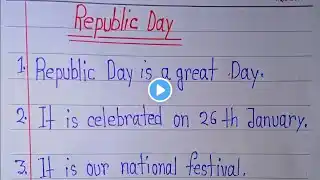 Republic Day
1. Republic Day is a great Day.
2. It is celebrated on 26th January.
3. It is our national festival.